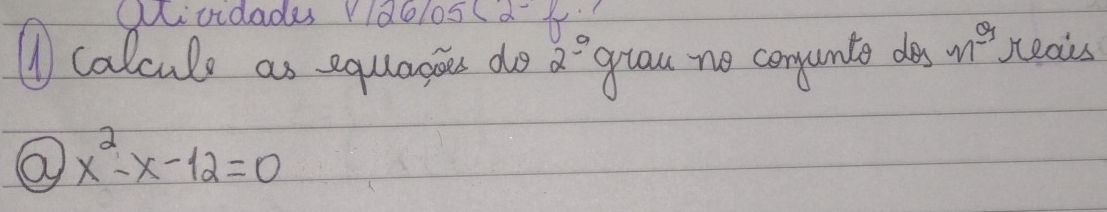 Atividades 26/05 (2ª f.)
① Calcule as equações do 2º grau no conjunto dos nºs reais
ⓐ x² - x - 12 = 0